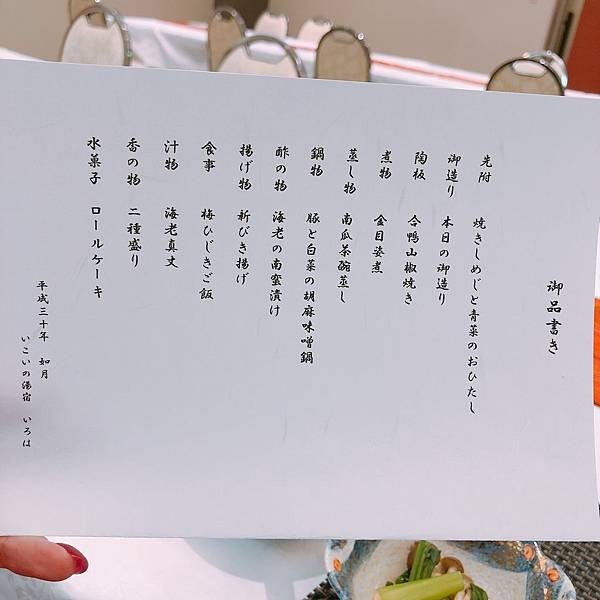 御品書き
先附 焼きしめじと青菜のおひたし
御造り 本日の御造り
陶板 合鴨山椒焼き
煮物 金目姿煮
蒸し物 南瓜茶碗蒸し
鍋物 豚と白菜の胡麻味噌鍋
酢の物 海老の南蛮漬け
揚げ物 新びき揚げ
食事 梅ひじきご飯
汁物 海老真丈
香の物 二種盛り
水菓子 ロールケーキ
平成三十年 如月
いこいの湯宿 いろは